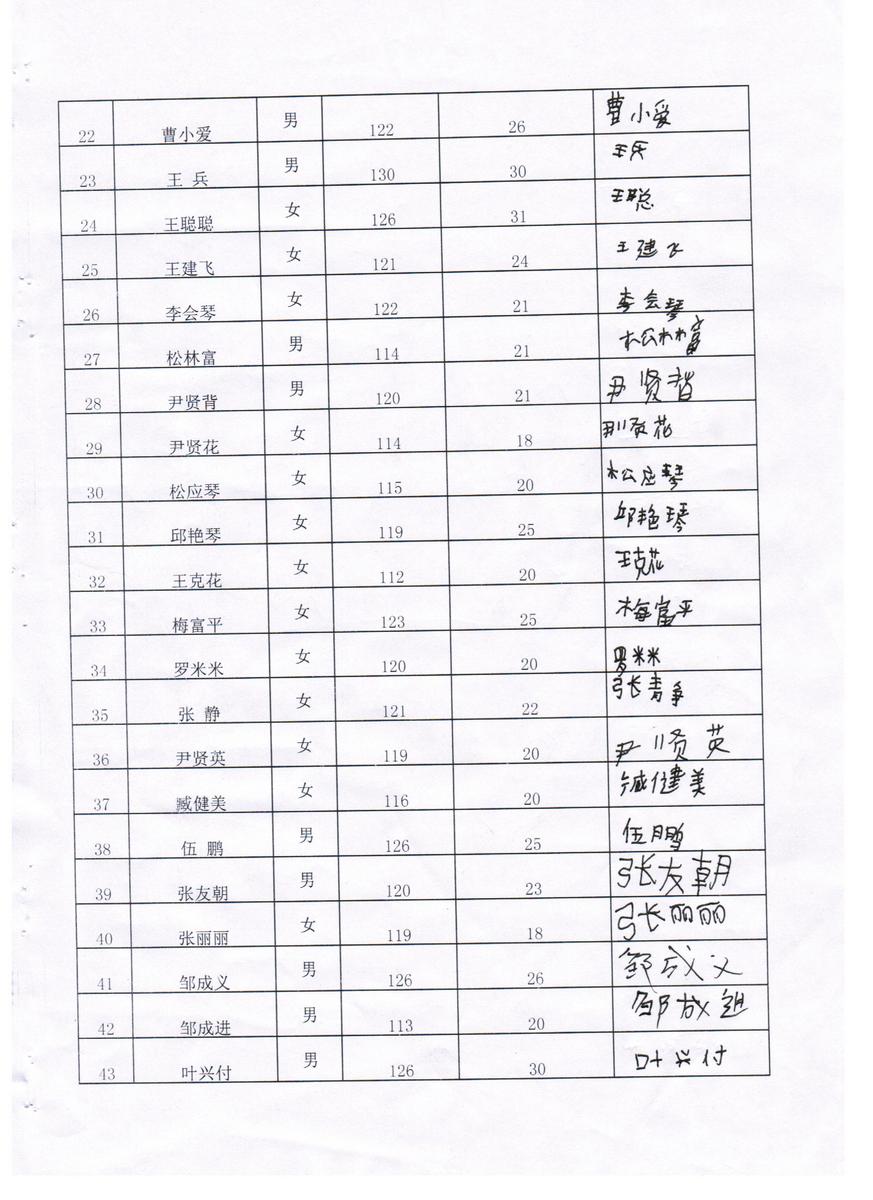 22 曹小爱 男 122 26 曹小爱
23 王 兵 男 130 30 王兵
24 王聪聪 女 126 31 王聪
25 王建飞 女 121 24 王建飞
26 李会琴 女 122 21 李会琴
27 松林富 男 114 21 松林富
28 尹贤背 男 120 21 尹贤背
29 尹贤花 女 114 18 尹贤花
30 松应琴 女 115 20 松应琴
31 邱艳琴 女 119 25 邱艳琴
32 王克花 女 112 20 王克花
33 梅富平 女 123 25 梅富平
34 罗米米 女 120 20 罗米米
35 张 静 女 121 22 张静
36 尹贤英 女 119 20 尹贤英
37 臧健美 女 116 20 臧健美
38 伍 鹏 男 126 25 伍鹏
39 张友朝 男 120 23 张友朝
40 张丽丽 女 119 18 张丽丽
41 邹成义 男 126 26 邹成义
42 邹成进 男 113 20 邹成进
43 叶兴付 男 126 30 叶兴付